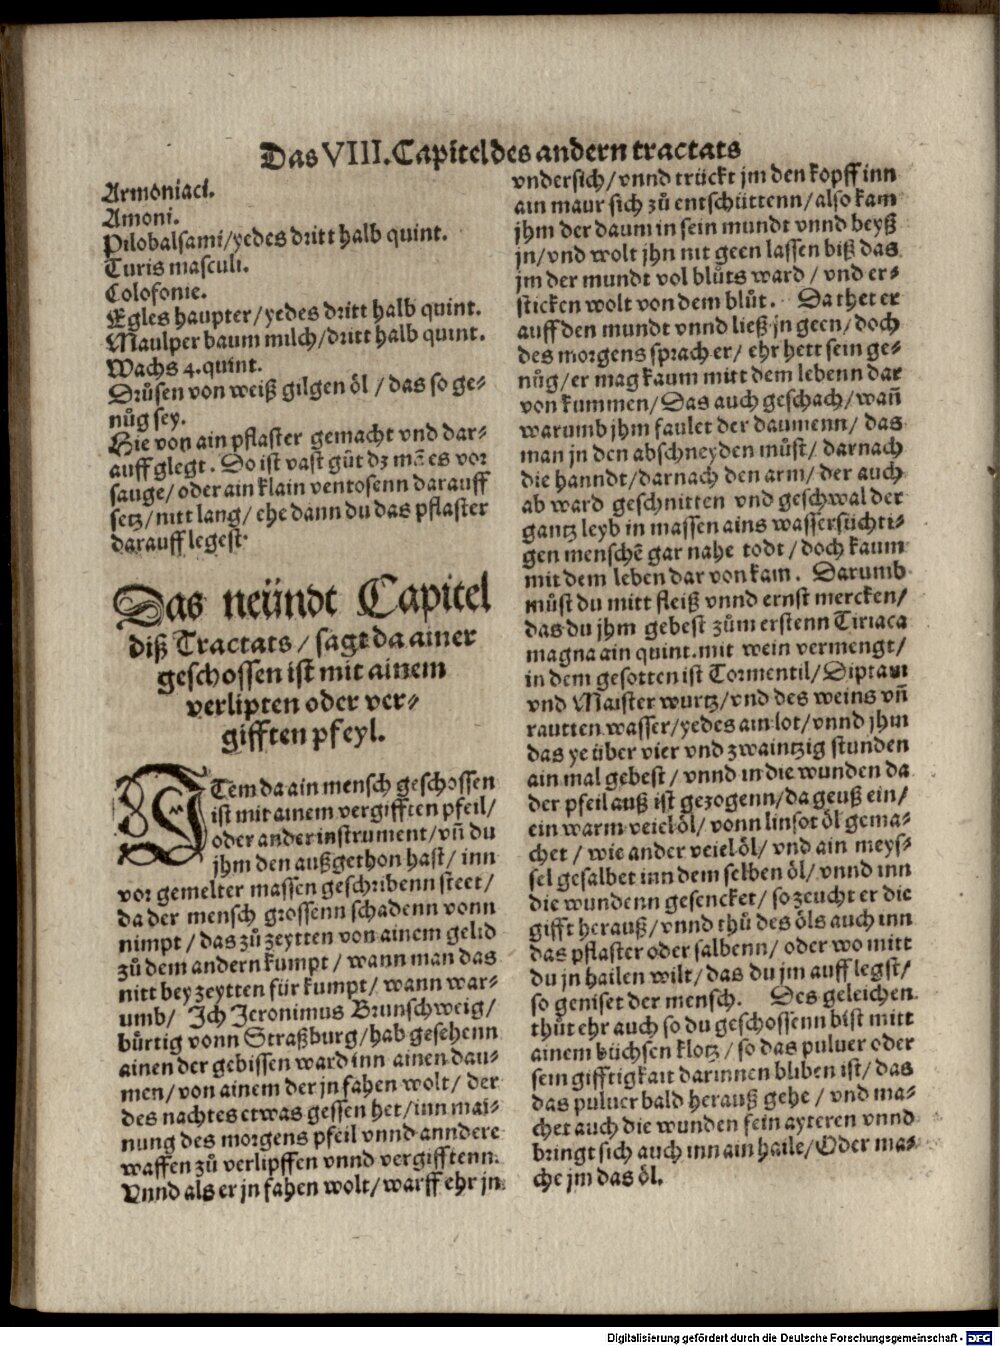 Das VIII. Capitel des andern tractats
Armoniaci.
Amoni.
Pilobalsami/yedes dritt halb quint.
Turis masculi.
Colofonie.
Egles haupter/yedes dritt halb quint.
Maulper baum milch/dritt halb quint.
Wachs 4. quint.
Drůsen von weiß gilgen öl / das so ge-
nůg sey.
Hie von ain pflaster gemacht vnd dar-
auff glegt. So ist vast gůt dz mā es vor
sauge/ oder ain klain ventosenn darauff
setz/nitt lang/ ehe dann du das pflaster
darauff legest.
Das neündt Capitel
diß Tractats / sagt da ainer
geschossen ist mit ainem
verlipten oder ver-
gifften pfeyl.
ITem da ain mensch geschossen
ist mit ainem vergifften pfeil/
oder ander instrument/vn̄ du
jhm den außgethon hast/ inn
vor gemelter massen geschribenn steet/
da der mensch grossenn schadenn vonn
nimpt / das zů zeytten von ainem gelid
zů dem andern kumpt / wann man das
nitt bey zeytten für kumpt/ wann war-
umb/ Ich Jeronimus Brunschweig/
bürtig vonn Straßburg/hab gesehenn
ainen der gebissen ward inn ainen dau-
men/von ainem der jn fahen wolt/ der
des nachtes etwas gessen het/inn mai-
nung des morgens pfeil vnnd anndere
waffen zů verlipffen vnnd vergifftenn.
Vnnd als er jn fahen wolt/warff ehr jn
vndersich/vnnd trückt jm den kopff inn
ain maur sich zů entschüttenn/also kam
jhm der daum in sein mundt vnnd beyß
jn/vnd wolt jhn nit geen lassen biß das
jm der mundt vol blůts ward / vnd er-
sticken wolt von dem blůt. Da thet er
auff den mundt vnnd ließ jn geen/doch
des morgens sprach er/ ehr hett sein ge-
nůg/er mag kaum mitt dem lebenn dar
von kummen/Das auch geschach/wan̄
warumb jhm faulet der daumenn/ das
man jn den abschneyden můst/ darnach
die hanndt/darnach den arm/ der auch
ab ward geschnitten vnd geschwal der
gantz leyb in massen ains wassersüchti-
gen menschē gar nahe todt / doch kaum
mit dem leben dar von kam. Darumb
můst du mitt fleiß vnnd ernst mercken/
das du jhm gebest zům erstenn Tiriaca
magna ain quint. mit wein vermengt/
in dem gesotten ist Tormentil/Diptam
vnd Maister wurtz/vnd des weins vn̄
rautten wasser/yedes ain lot/vnnd jhm
das ye über vier vnd zwaintzig stunden
ain mal gebest / vnnd in die wunden da
der pfeil auß ist gezogenn/da geuß ein/
ein warm veiel öl/ vonn linsot öl gema-
chet / wie ander veiel öl/ vnd ain meys-
sel gesalbet inn dem selben öl/ vnnd inn
die wundenn gesencket/ so zeucht er die
gifft herauß/vnnd thů des öls auch inn
das pflaster oder salbenn/ oder wo mitt
du jn hailen wilt/das du jm auff legst/
so geniset der mensch. Des geleichen
thůt ehr auch so du geschossenn bist mitt
ainem büchsen klotz / so das puluer oder
sein gifftigkait darinnen bliben ist/ das
das puluer bald herauß gehe / vnd ma-
chet auch die wunden fein ayteren vnnd
bringt sich auch inn ain haile/Oder ma-
che jm das öl.
Digitalisierung gefördert durch die Deutsche Forschungsgemeinschaft - DFG